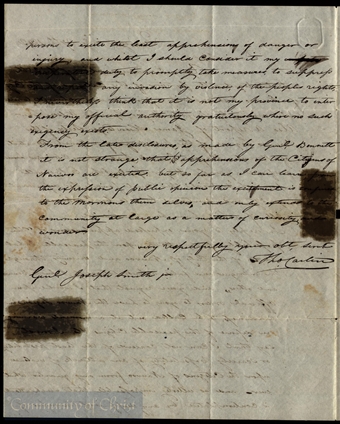 persons to excite the least apprehensions of danger or
injury and whilst I should consider it my
duty to promptly take measures to suppress
any invasion by violence of the peoples rights
think that it is not my province to inter
pose my official authority gratuitously where no such
exigency exists.
From the late disclosures, as made by Genl Bennett
it is not strange that apprehensions of the Citizens of
Nauvoo are excited, but so far as I can learn
the expression of public opinion the excitement is
to the Mormons them selves, and only extends to the
community at large as a matter of curiosity and
wonder
very respectfully your obt servt
Tho Carlin
Genl. Joseph Smith jr
Community of Christ